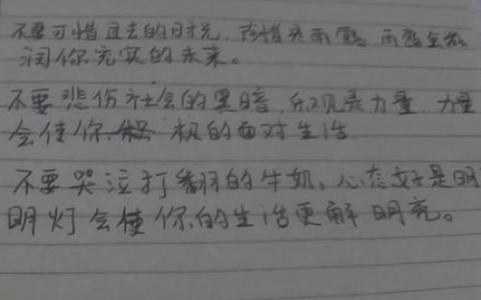 不要可惜过去的时光，珍惜是雨露，雨露会滋
润你充实的未来。
不要悲伤社会的黑暗，乐观是力量，力量
会使你 极的面对生活
不要哭泣打翻的牛奶，心态好是明
明灯会使你的生活更 明亮。